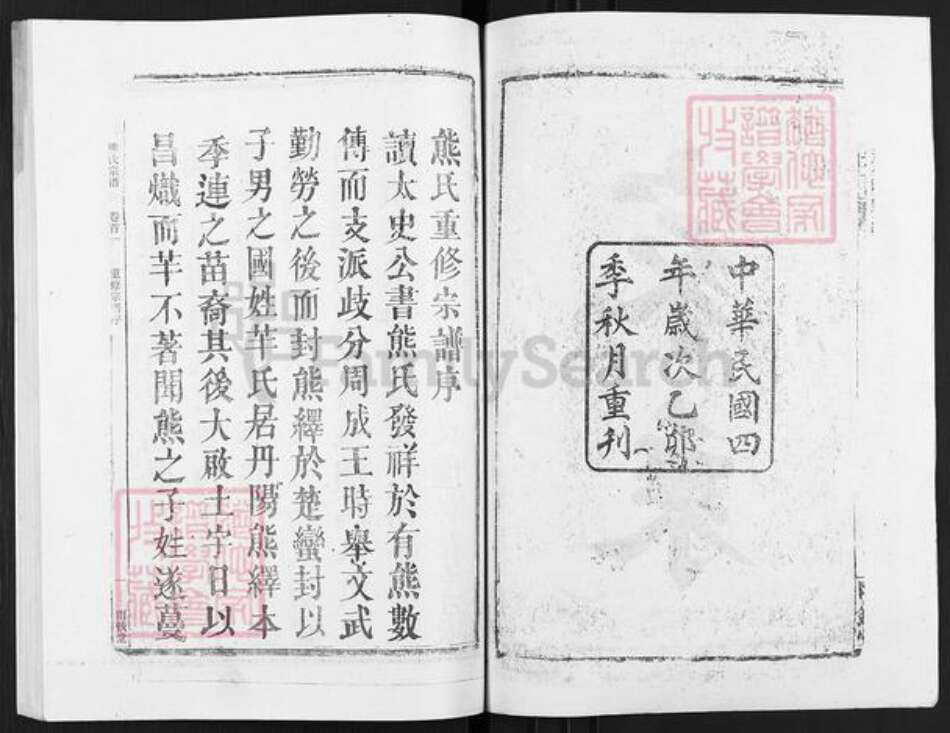 中華民國四
年歲次乙卯
季秋月重刊
猶他家
譜學會
收藏
熊氏重修宗譜序
讀太史公書熊氏發祥於有熊數
傳而支派歧分周成王時舉文武
勤勞之後而封熊繹於楚蠻封以
子男之國姓芉氏居丹陽熊繹本
季連之苗裔其後大啟土宇日以
昌熾而芉不著聞熊之子姓遂蔓
熊氏宗譜 卷首一 重修宗譜序
猶他家
譜學會
收藏
FamilySearch